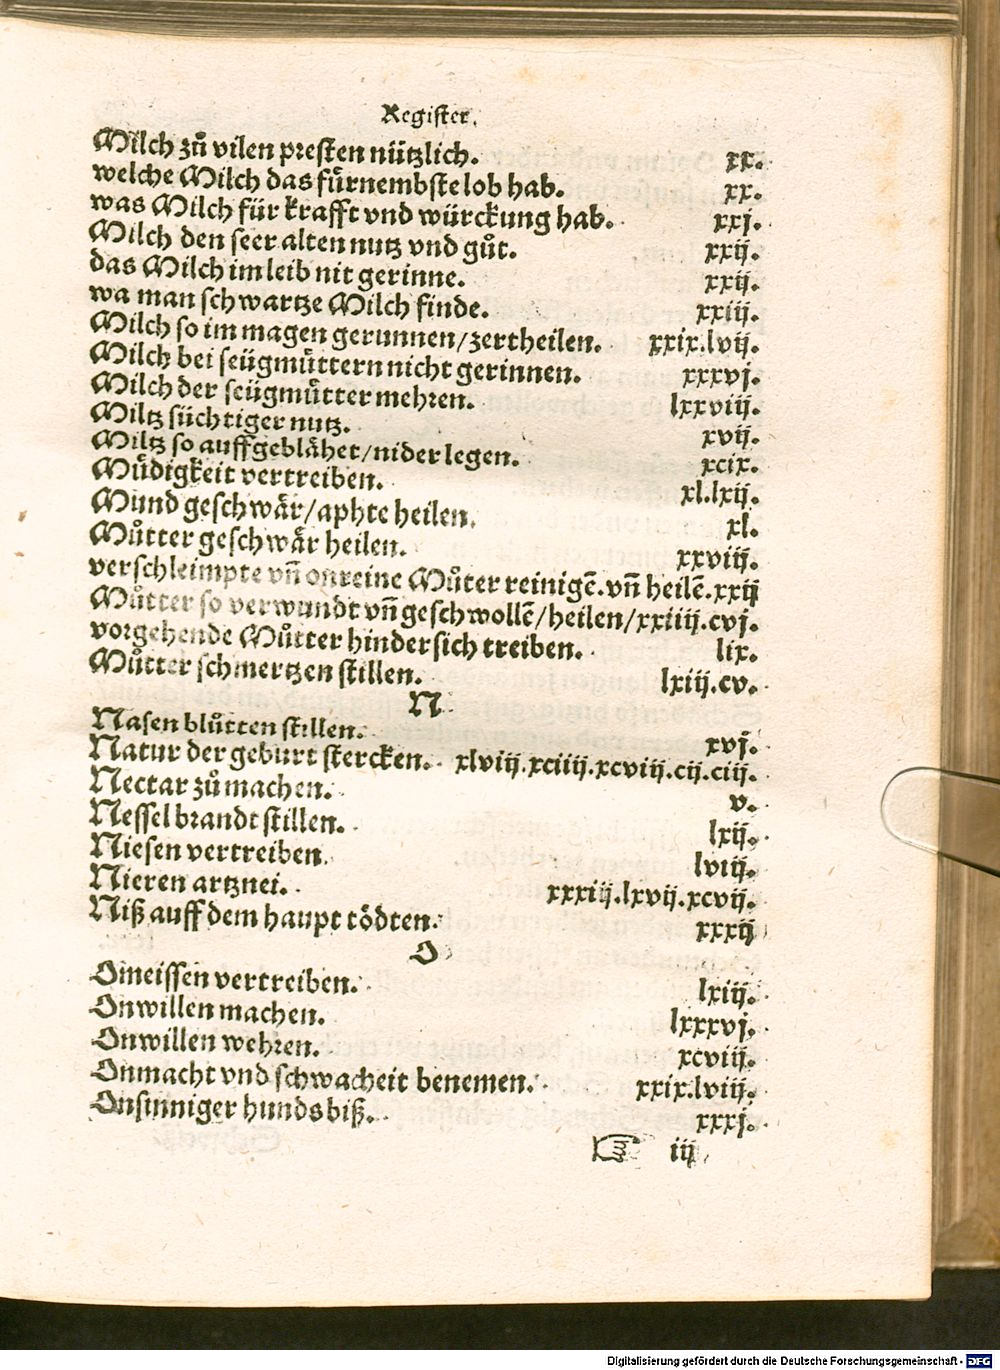 Register.
Milch zů vilen presten nützlich. xx.
welche Milch das fürnembste lob hab. xx.
was Milch für krafft vnd würckung hab. xxj.
Milch den seer alten nutz vnd gůt. xxij.
das Milch im leib nit gerinne. xxij.
wa man schwartze Milch finde. xxiij.
Milch so im magen gerunnen/zertheilen. xxix.lvij.
Milch bei seügmůttern nicht gerinnen. xxxvj.
Milch der seügmůtter mehren. lxxviij.
Miltz süchtiger nutz. xvij.
Miltz so auffgeblähet/nider legen. xcix.
Müdigkeit vertreiben. xl.lxij.
Mund geschwär/aphte heilen. xl.
Můtter geschwär heilen. xxviij.
verschleimpte vñ onreine Můter reinigẽ.vñ heilẽ.xxij
Můtter so verwundt vñ geschwollẽ/heilen/xxiiij.cvj.
vorgehende Můtter hindersich treiben. lix.
Můtter schmertzen stillen. lxiij.cv.
N
Nasen blůtten stillen. xvj.
Natur der geburt stercken. xlviij.xciiij.xcviij.cij.ciij.
Nectar zů machen. v.
Nessel brandt stillen. lxij.
Niesen vertreiben. lviij.
Nieren artznei. xxxiij.lxvij.xcvij.
Niß auff dem haupt tödten. xxxij
O
Omeissen vertreiben. lxiij.
Onwillen machen. lxxxvj.
Onwillen wehren. xcviij.
Onmacht vnd schwacheit benemen. xxix.lviij.
Onsinniger hundsbiß. xxxj.
☞ iij
Digitalisierung gefördert durch die Deutsche Forschungsgemeinschaft - DFG